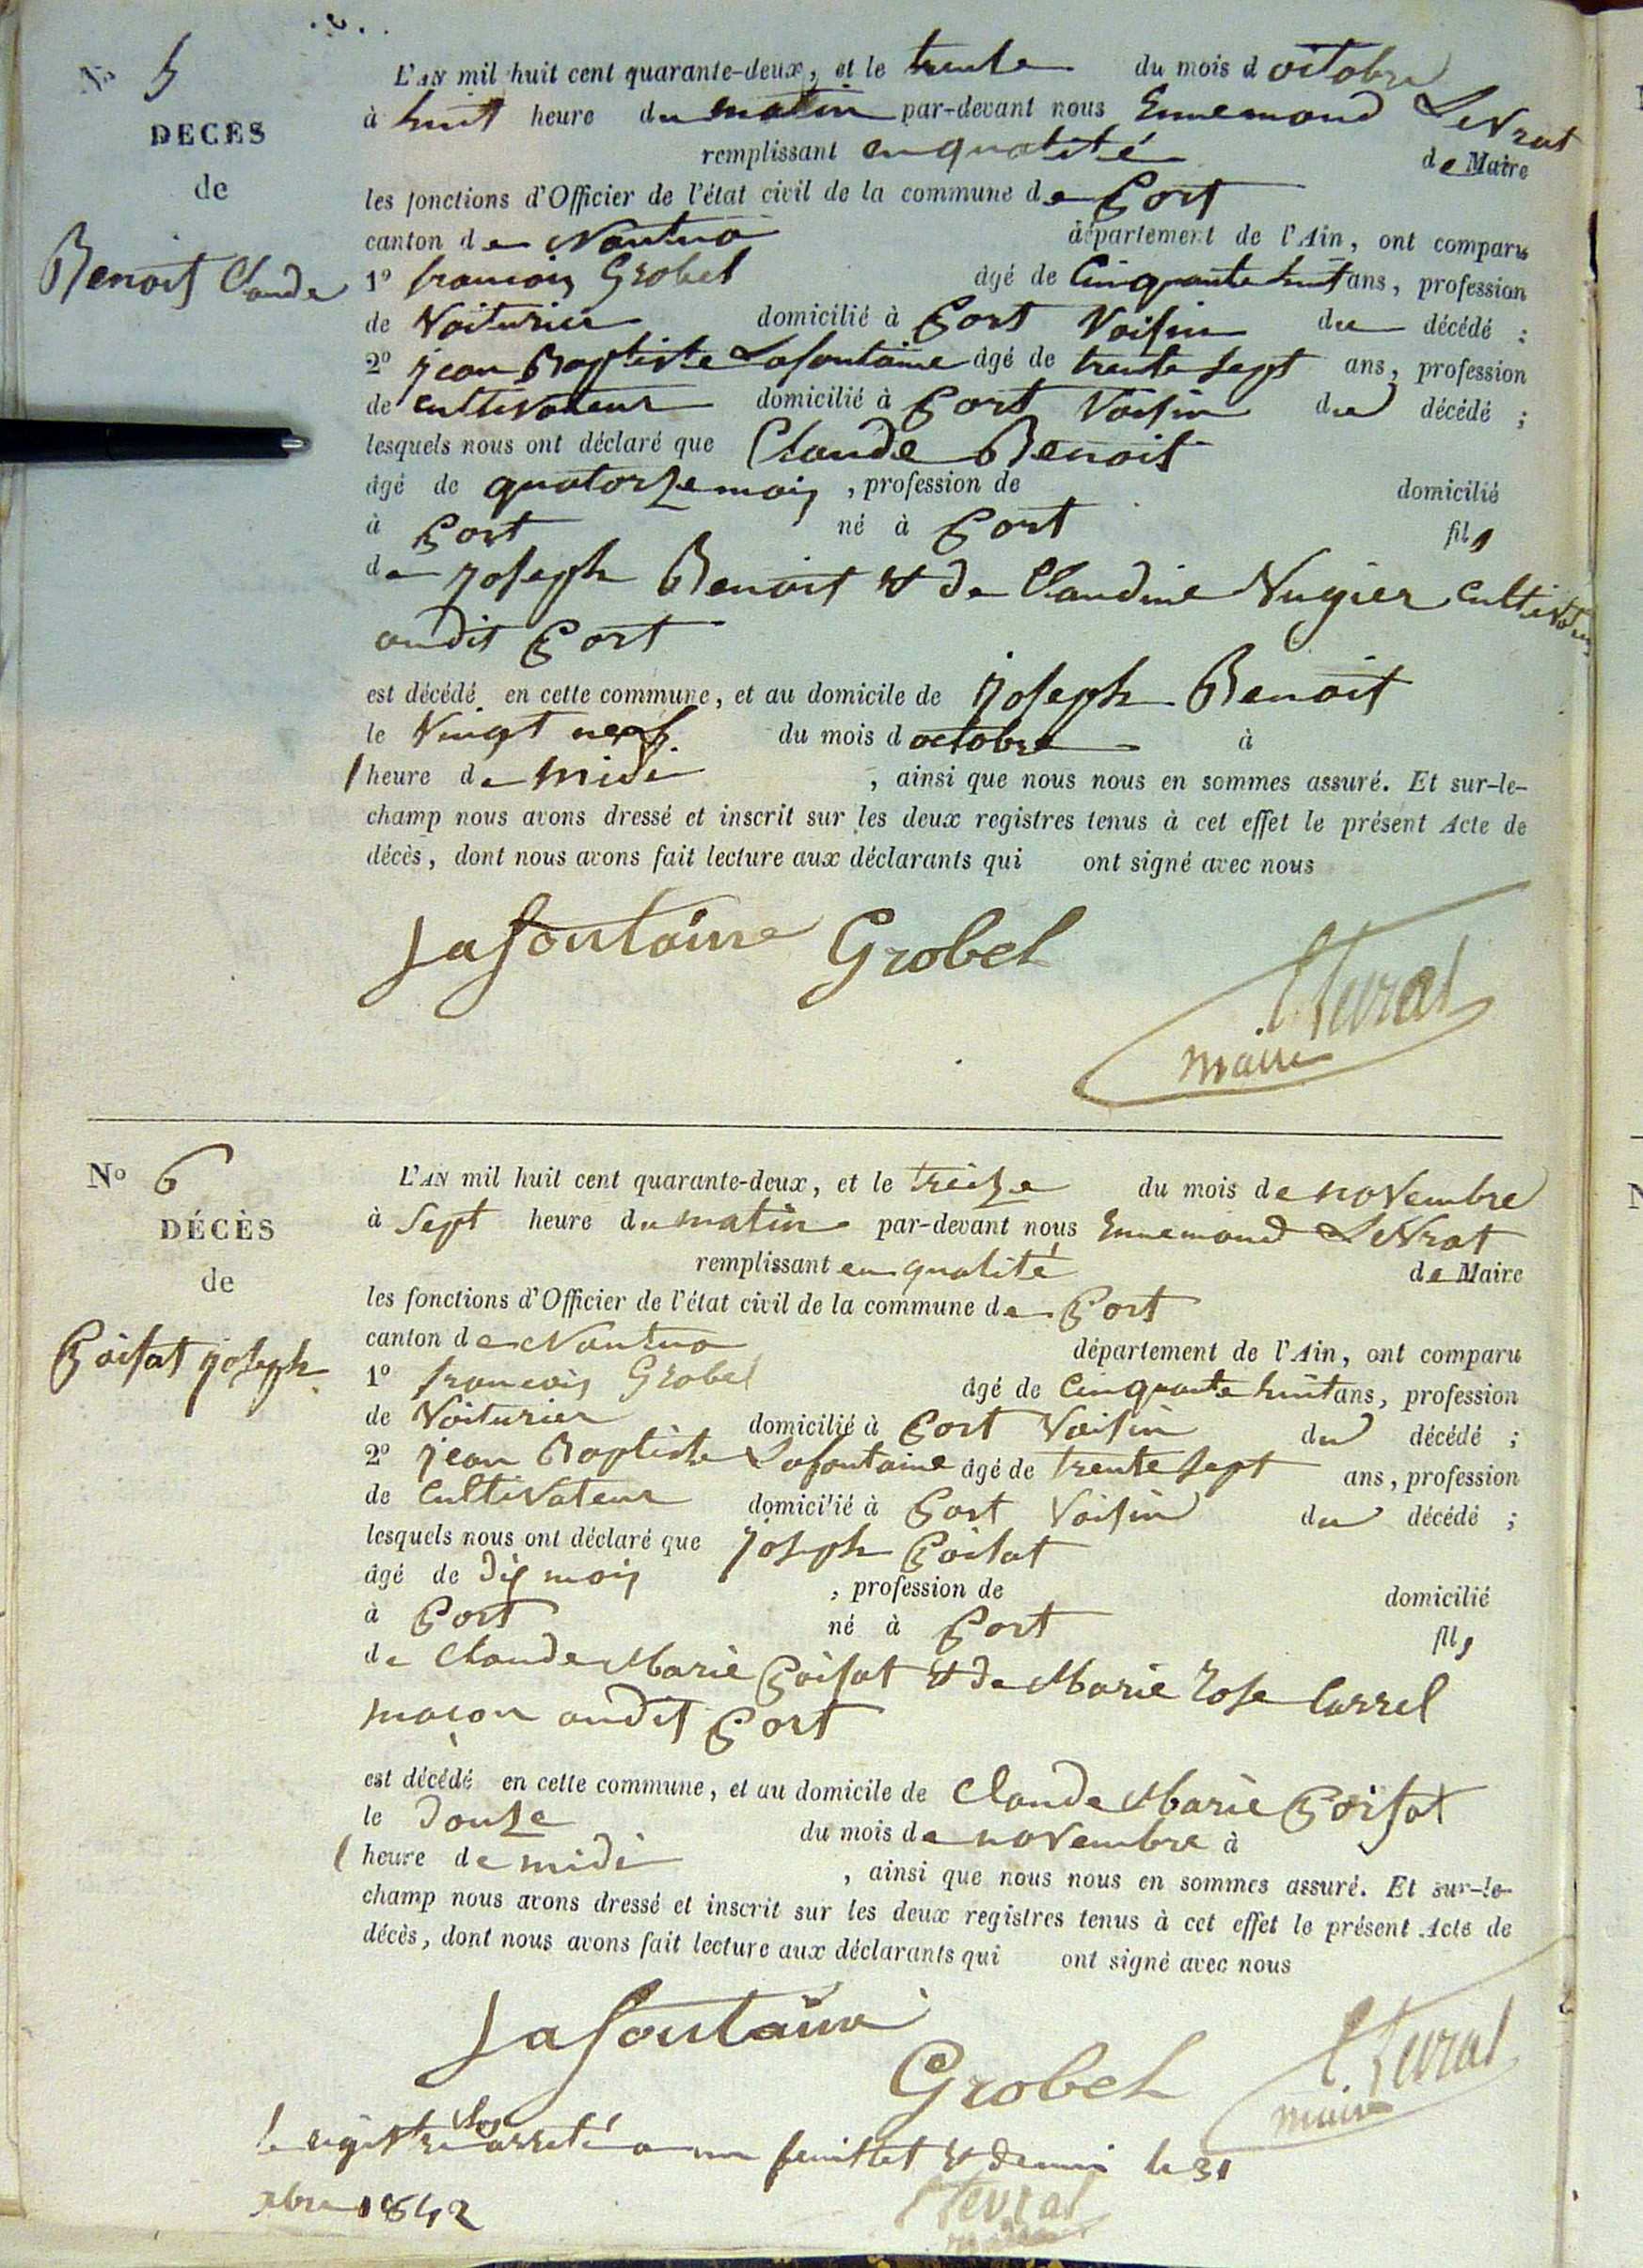 N° 5
DÉCÈS
de
Benoit Claude
L'AN mil huit cent quarante-deux, et le trente du mois d octobre
à huit heure du matin par-devant nous Ennemond Levrat
remplissant en qualité de Maire
les fonctions d'Officier de l'état civil de la commune de Port
canton de Nantua département de l'Ain, ont comparu
1° francois Grobel âgé de Cinquante huit ans, profession
de Voiturier domicilié à Port Voisin du décédé ;
2° jean Baptiste Lafontaine âgé de trente sept ans, profession
de cultivateur domicilié à Port Voisin du décédé ;
lesquels nous ont déclaré que Claude Benoit
âgé de quatorze mois , profession de domicilié
à Port né à Port fils
de joseph Benoit & de Claudine Nugier cultivateur
audit Port
est décédé en cette commune, et au domicile de joseph Benoit
le Vingt neuf du mois d octobre à
1 heure de midi , ainsi que nous nous en sommes assuré. Et sur-le-
champ nous avons dressé et inscrit sur les deux registres tenus à cet effet le présent Acte de
décès, dont nous avons fait lecture aux déclarants qui ont signé avec nous
Lafontaine Grobel
Levrat
maire
N° 6
DÉCÈS
de
Poisat joseph
L'AN mil huit cent quarante-deux, et le treize du mois de novembre
à Sept heure du matin par-devant nous Ennemond Levrat
remplissant en qualité de Maire
les fonctions d'Officier de l'état civil de la commune de Port
canton de Nantua département de l'Ain, ont comparu
1° francois Grobel âgé de Cinquante huit ans, profession
de Voiturier domicilié à Port Voisin du décédé ;
2° jean Baptiste Lafontaine âgé de trente sept ans, profession
de Cultivateur domicilié à Port Voisin du décédé ;
lesquels nous ont déclaré que joseph Poisat
âgé de dix mois , profession de domicilié
à Port né à Port fils
de Claude Marie Poisat & de Marie Rose Carrel
maçon audit Port
est décédé en cette commune, et au domicile de Claude Marie Poisat
le douze du mois de novembre à
1 heure de midi , ainsi que nous nous en sommes assuré. Et sur-le-
champ nous avons dressé et inscrit sur les deux registres tenus à cet effet le présent Acte de
décès, dont nous avons fait lecture aux déclarants qui ont signé avec nous
Lafontaine
Grobel
Levrat
maire
le registre clos arreté a un feuillet & demi le 31
xbre 1842
Levrat
maire